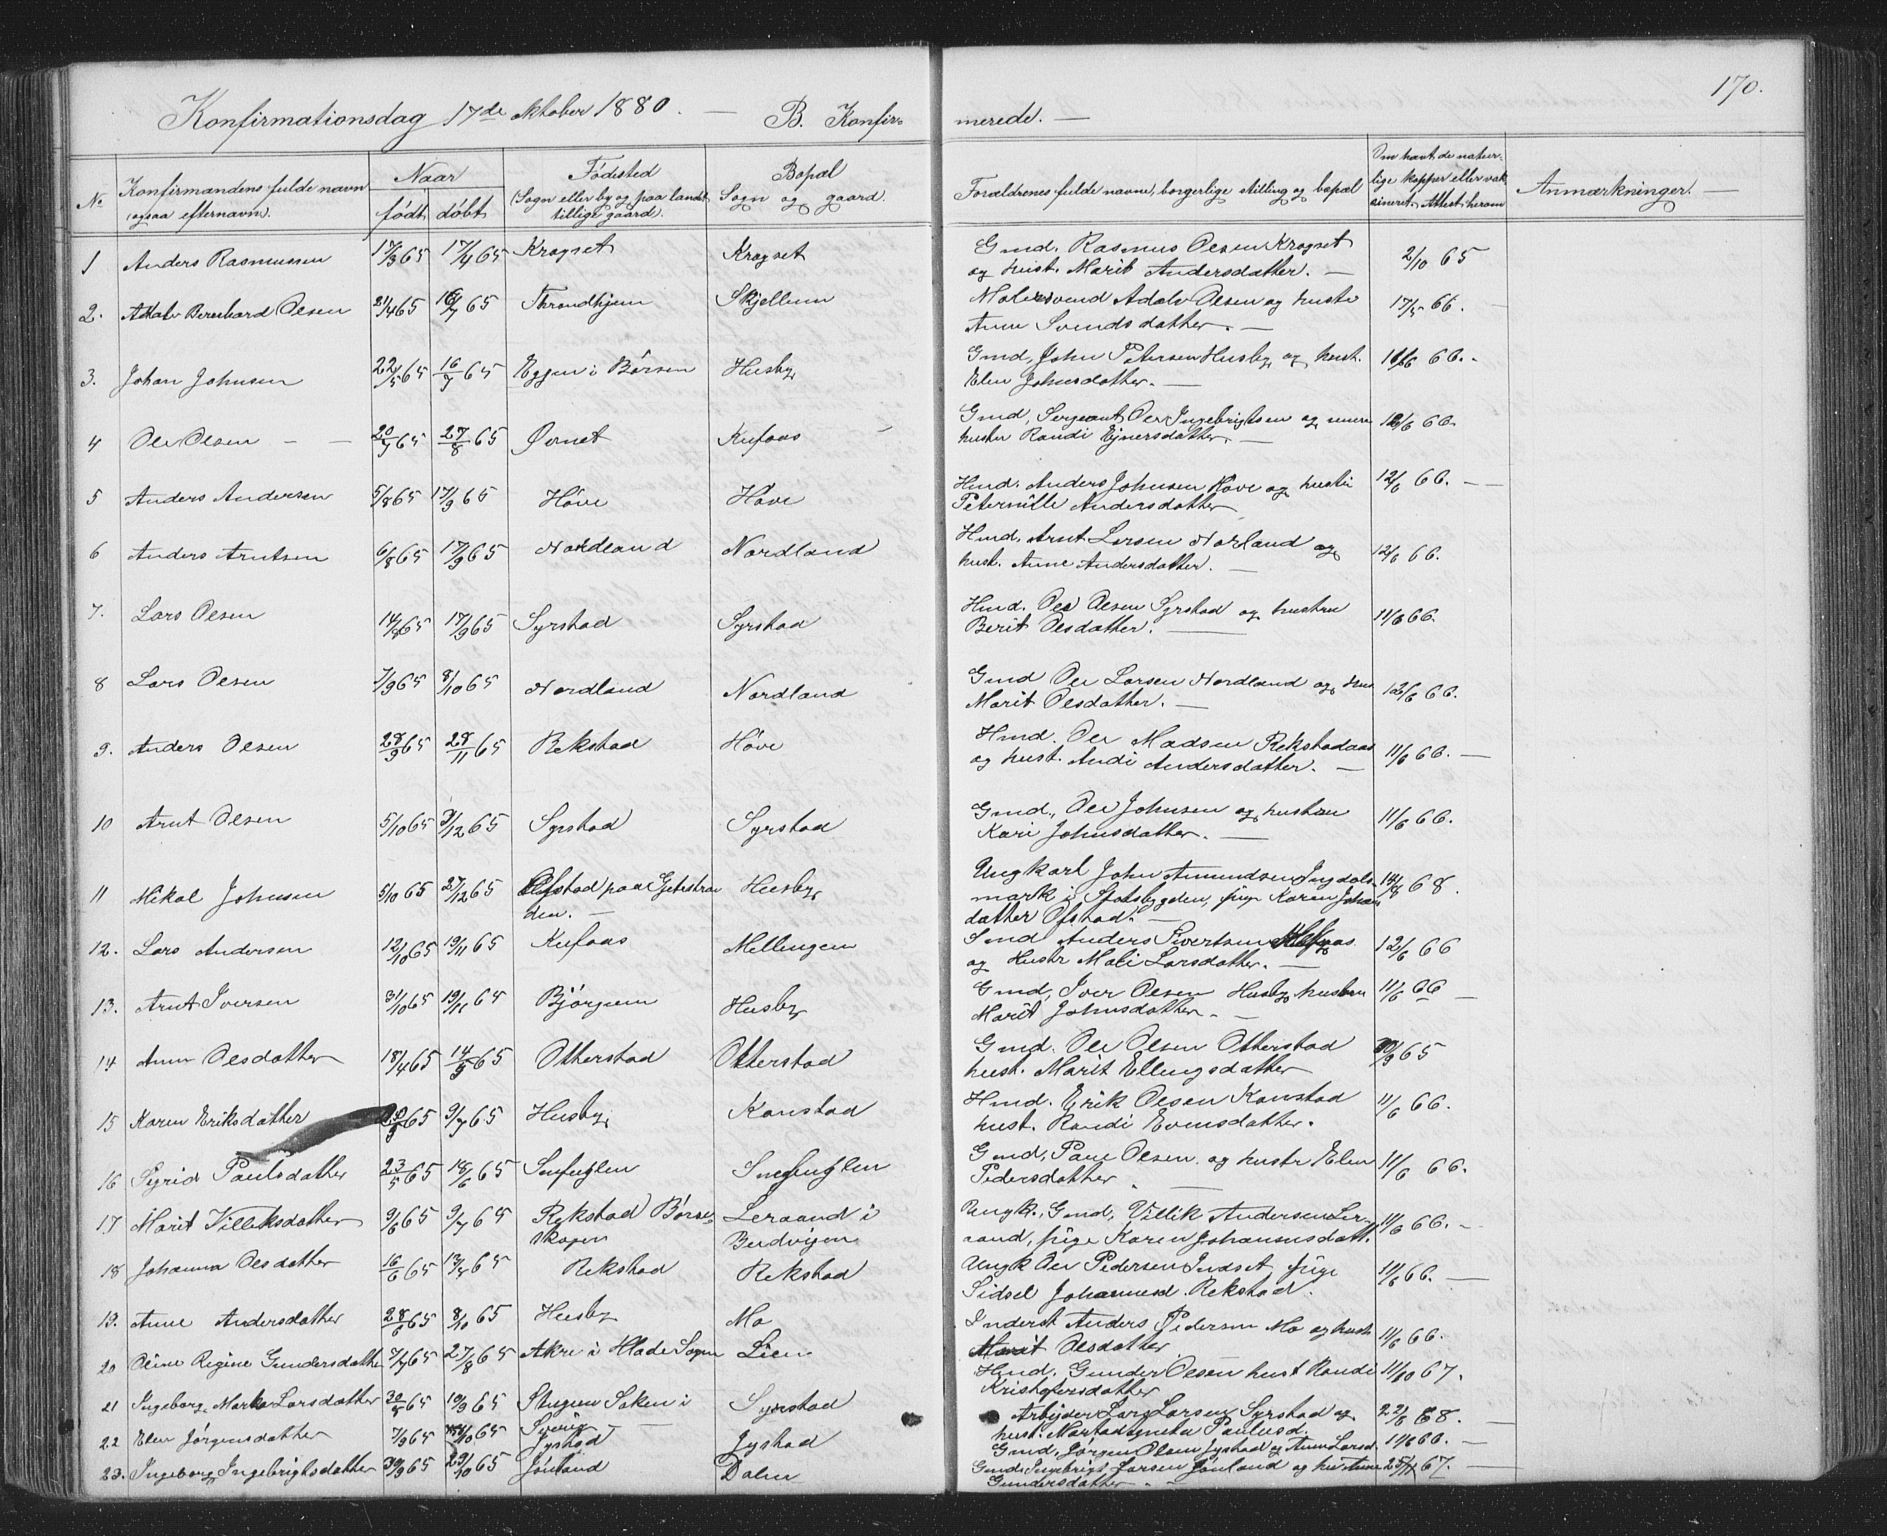 170.
Konfirmationsdag 17de oktober 1880. — B. Konfir=
merede. —
No
Konfirmandens fulde navn
(ogsaa efternavn).
Naar
født døbt
Fødested
(Sogn eller by og paa landet
tillige gaard).
Bopæl
Sogn og gaard.
Forældrenes fulde navne, borgerlige stilling og bopæl
Om havt de natur-
lige kopper eller vak-
sineret. Attest herom
Anmærkninger. —
1 Anders Rasmussen 17/3 65 17/4 65 Krogset Krogset Gmd. Rasmus Olsen Krogset 2/10 65
og hust. Marit Andersdatter. —
2. Adolv Bernhard Olsen 21/4 65 16/7 65 Throndhjem Skjellum Malersvend Adolv Olsen og hustr 17/5 66. —
Anne Svendsdatter. —
3. Johan Johnsen 22/5 65 16/7 65 Eggen i Børsen Husby Gmd, John Petersen Husby og hust. 11/6 66.
Elen Johnsdatter. —
4 Ole Olsen — — 20/7 65 27/8 65 Øvnet Kufaas Gmd, Sergeant Ole Ingebrigtsen og 12/6 66.
hustru Randi Ejnersdatter. —
5 Anders Andersen 5/8 65 17/9 65 Høve Høve Hmd. Anders Johnsen Høve og hustru 12/6 66. —
Peternille Andersdatter
6 Anders Arntsen 6/8 65 17/9 65 Nordland Nordland Hmd. Arnt Larsen Norland og 12/6 66.
hust. Anne Andersdatter. —
7. Lars Olsen 14/8 65 17/9 65 Syrstad Syrstad Hmd. Ole Olsen Syrstad og hustru 11/6 66.
Berit Olsdatter. —
8 Lars Olsen 7/9 65 8/10 65 Nordland Nordland Gmd Ole Larsen Nordland og hus 12/6 66.
Marit Olsdatter. —
9. Anders Olsen 28/9 65 28/11 65 Rekstad Høve Hmd. Ole Madsen Rekstadaas 11/6 66. —
og hust. Andi Andersdatter. —
10 Arnt Olsen 5/10 65 3/12 65 Syrstad Syrstad Gmd, Ole Johnsen og hustru 11/6 66.
Kari Johnsdatter. —
11 Mikal Johnsen 5/10 65 27/12 65 Ofstad paa Gjetstran Husby Ungkarl John Amundsen Ingdals 14/8 68.
den. — mark i Stadsbygden, pige Karen Johan
datter Ofstad. —
12. Lars Andersen 12/10 65 19/11 65 Kufaas Mellingen Gmd Anders Sivertsen Kufaas 12/6 66
og Hustr Mali Larsdatter. —
13. Arnt Iversen 31/10 65 19/11 65 Bjørgum Husby Gmd, Iver Olsen Husby hustru 11/6 66 —
Marit Johnsdatter. —
14 Anne Olsdatter 18/4 65 14/5 65 Otterstad Otterstad Gmd. Ole Olsen Otterstad 30/9 65
hust. Marit Ellingsdatter
15 Karen Eriksdatter 65 9/7 65 Husby Konstad Hmd. Erik Olsen Konstad 11/6 66.
hust. Randi Evensdatter.
16 Sigrid Paulsdatter 23/5 65 18/6 65 Snefuglen Snefuglen Gmd, Paul Olsen og hustr Elen 11/6 66.
Pedersdatter. —
17 Marit Villiksdatter 9/6 65 9/7 65 Rekstad Børse Leraand i Ungk., Gmd, Villik Andersen Ler- 11/6 66. —
skogen Budvigen aand, pige Karen Johannesdatt.
18 Johanna Olsdatter 16/6 65 13/8 65 Rekstad Rekstad Ungk Ole Pedersen Indset pige 11/6 66. —
Sidsel Johannesd. Rekstad.
19. Anne Andersdatter 28/6 65 8/10 65 Husby Mo Inderst Anders Pedersen Mo og hust 11/6 66.
Marit Olsdatter
20 Oline Regine Gundersdatter 7/7 65 27/8 65 Akre i Hlade Sogn Lien Hmd. Gunder Olsen hust Randi 11/10 67.
Kristofersdatter
21 Ingeborg Marka Larsdatter 30/5 65 10/9 65 Stugun Soken i Syrstad Arbejder Lars Larsen Syrstad og 22/6 68. —
Sverig — hust. Paulusd.
22 Elen Jørgensdatter 7/9 65 10 65 Jystad Jystad Gmd, Jørgen Olsen Jystad og Anne Larsd. 11/6 66. —
23. Ingeborg Ingebrigtsdatter 30/9 65 29/10 65 Jønland Dalen Gmd. Ingebrigt Larsen Jønland og hu Anne 25/11 67. —
Gundersdatter —